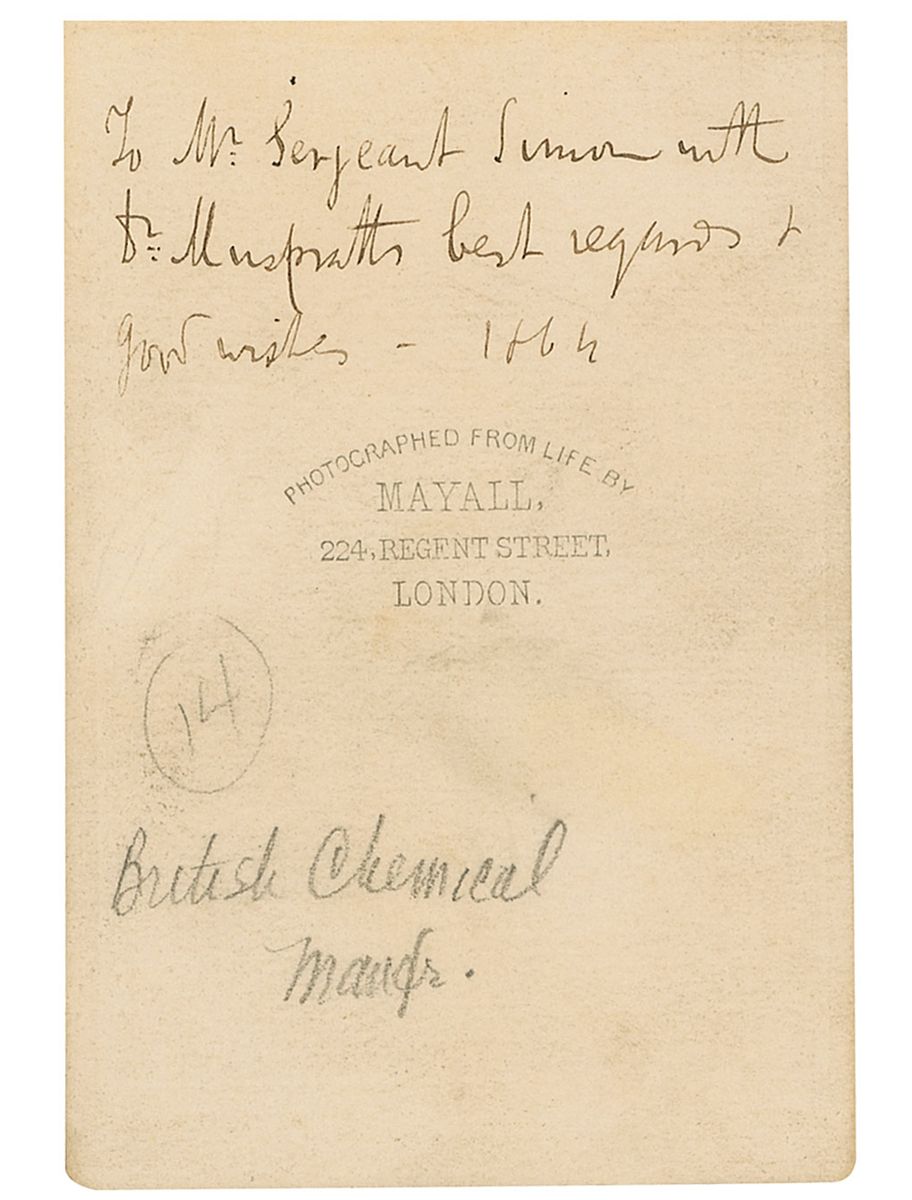 To Mr. Sergeant Simon with
Dr. Muspratts best regards &
good wishes – 1864
PHOTOGRAPHED FROM LIFE BY
MAYALL,
224, REGENT STREET,
LONDON.
14
British Chemical
Manfr.